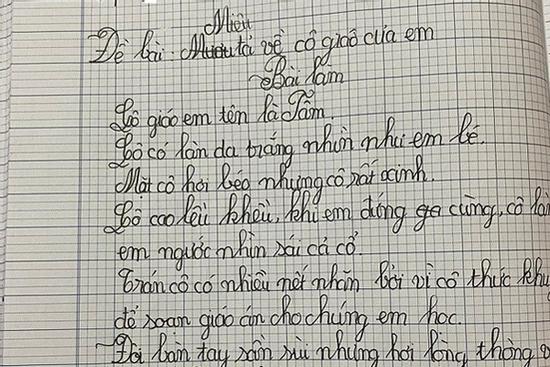 Miêu
Đề bài: tả về cô giáo của em
Bài làm
Cô giáo em tên là Tâm.
Cô có làn da trắng nhìn như em bé.
Mặt cô hơi béo nhưng cô rất xinh.
Cô cao lêu khêu, khi em đứng gq cùng, cô làn
em ngước nhìn sái cả cổ.
Trán cô có nhiều nết nhăn bởi vì cô thức khu
để soạn giáo án cho chúng em học.
Đôi bàn tay sần sùi nhưng hơi lòng thòng